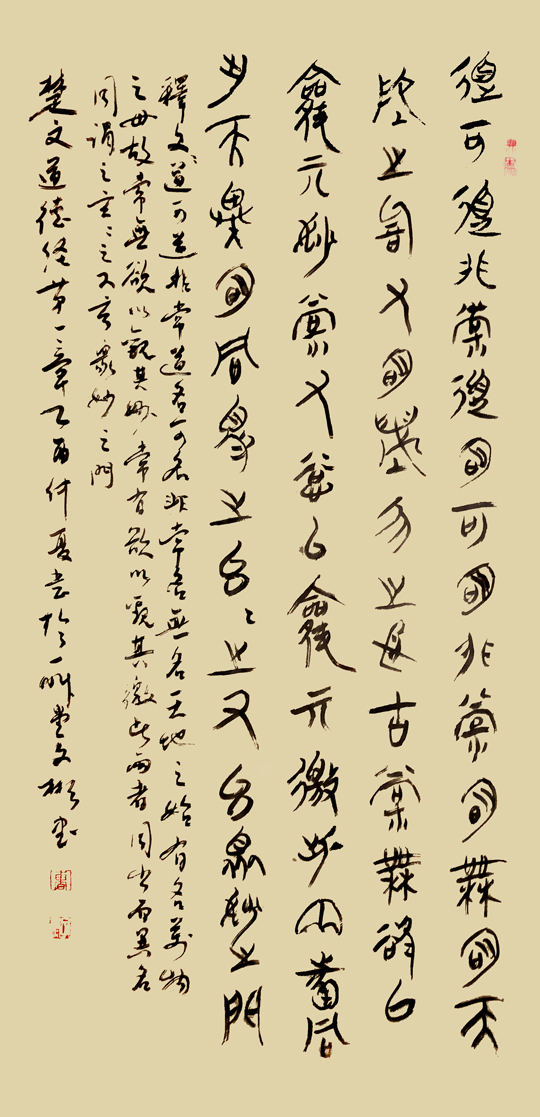 道可道非常道名可名非常名無名天
地之始又名萬勿之母古常無欲以
觀亓妙常又欲以觀亓徼此兩者同
出而異名同胃之玄〻之又玄眾妙之門
釋文道可道非常道名可名非常名無名天地之始有名萬物
之母故常無欲以觀其妙常有欲以觀其徼此兩者同出而異名
同謂之玄〻之又玄衆妙之門
楚文道德經第一章乙酉仲夏書於一堂文彬書